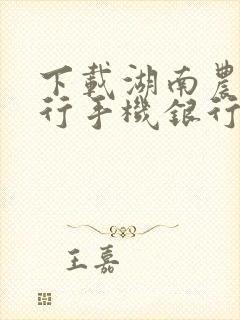 下載湖南農
行手機銀行
王嘉